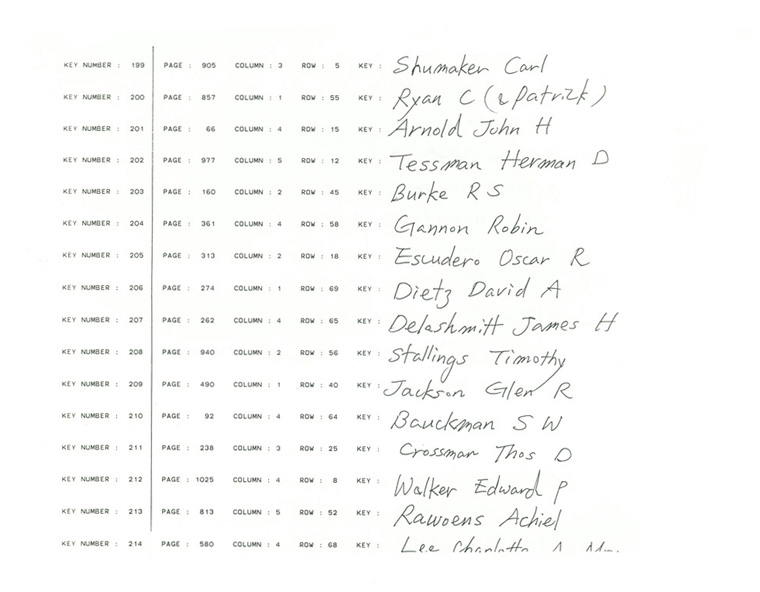 KEY NUMBER : 199 PAGE : 905 COLUMN : 3 ROW : 5 KEY : Shumaker Carl
KEY NUMBER : 200 PAGE : 857 COLUMN : 1 ROW : 55 KEY : Ryan C (& Patrizk)
KEY NUMBER : 201 PAGE : 66 COLUMN : 4 ROW : 15 KEY : Arnold John H
KEY NUMBER : 202 PAGE : 977 COLUMN : 5 ROW : 12 KEY : Tessman Herman D
KEY NUMBER : 203 PAGE : 160 COLUMN : 2 ROW : 45 KEY : Burke R S
KEY NUMBER : 204 PAGE : 361 COLUMN : 4 ROW : 58 KEY : Gannon Robin
KEY NUMBER : 205 PAGE : 313 COLUMN : 2 ROW : 18 KEY : Escudero Oscar R
KEY NUMBER : 206 PAGE : 274 COLUMN : 1 ROW : 69 KEY : Dietz David A
KEY NUMBER : 207 PAGE : 262 COLUMN : 4 ROW : 65 KEY : Delashmitt James H
KEY NUMBER : 208 PAGE : 940 COLUMN : 2 ROW : 56 KEY : Stallings Timothy
KEY NUMBER : 209 PAGE : 490 COLUMN : 1 ROW : 40 KEY : Jackson Glen R
KEY NUMBER : 210 PAGE : 92 COLUMN : 4 ROW : 64 KEY : Bauckman S W
KEY NUMBER : 211 PAGE : 238 COLUMN : 3 ROW : 25 KEY : Crossman Thos D
KEY NUMBER : 212 PAGE : 1025 COLUMN : 4 ROW : 8 KEY : Walker Edward P
KEY NUMBER : 213 PAGE : 813 COLUMN : 5 ROW : 52 KEY : Rawoens Achiel
KEY NUMBER : 214 PAGE : 580 COLUMN : 4 ROW : 68 KEY : Lee Charlotte A